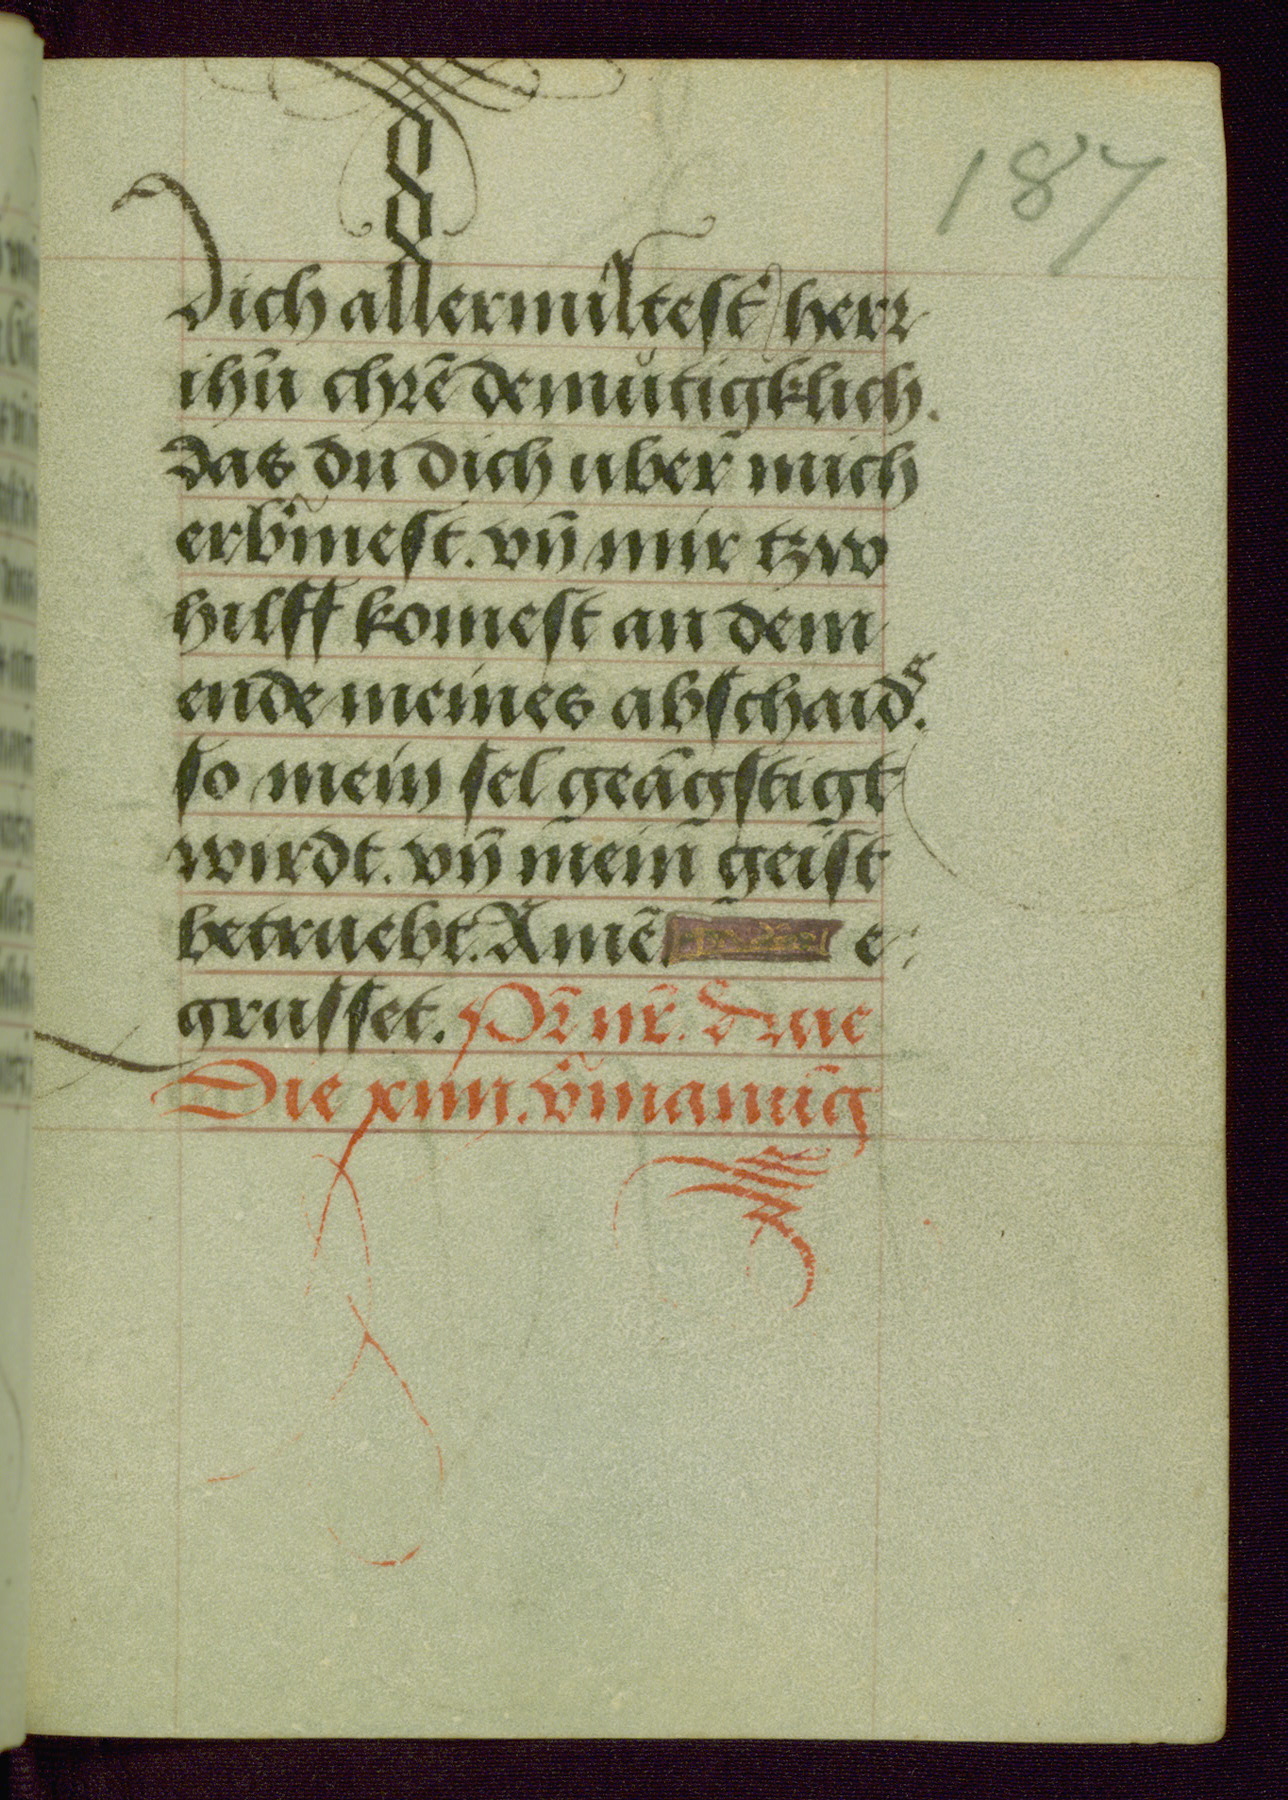 187
Dich allermiltest' herr
ihū chrē demůtigklich.
das du dich uber mich
erb'mest. vn̄ mir tzw
hilff komest an dem
ende meines abschaids.
so mein sel geāgstigt
wirdt. vn̄ mein geist
betruebt. Amē e
grusset. Pr̄ nr̄.
Die xiiii. v'manūg